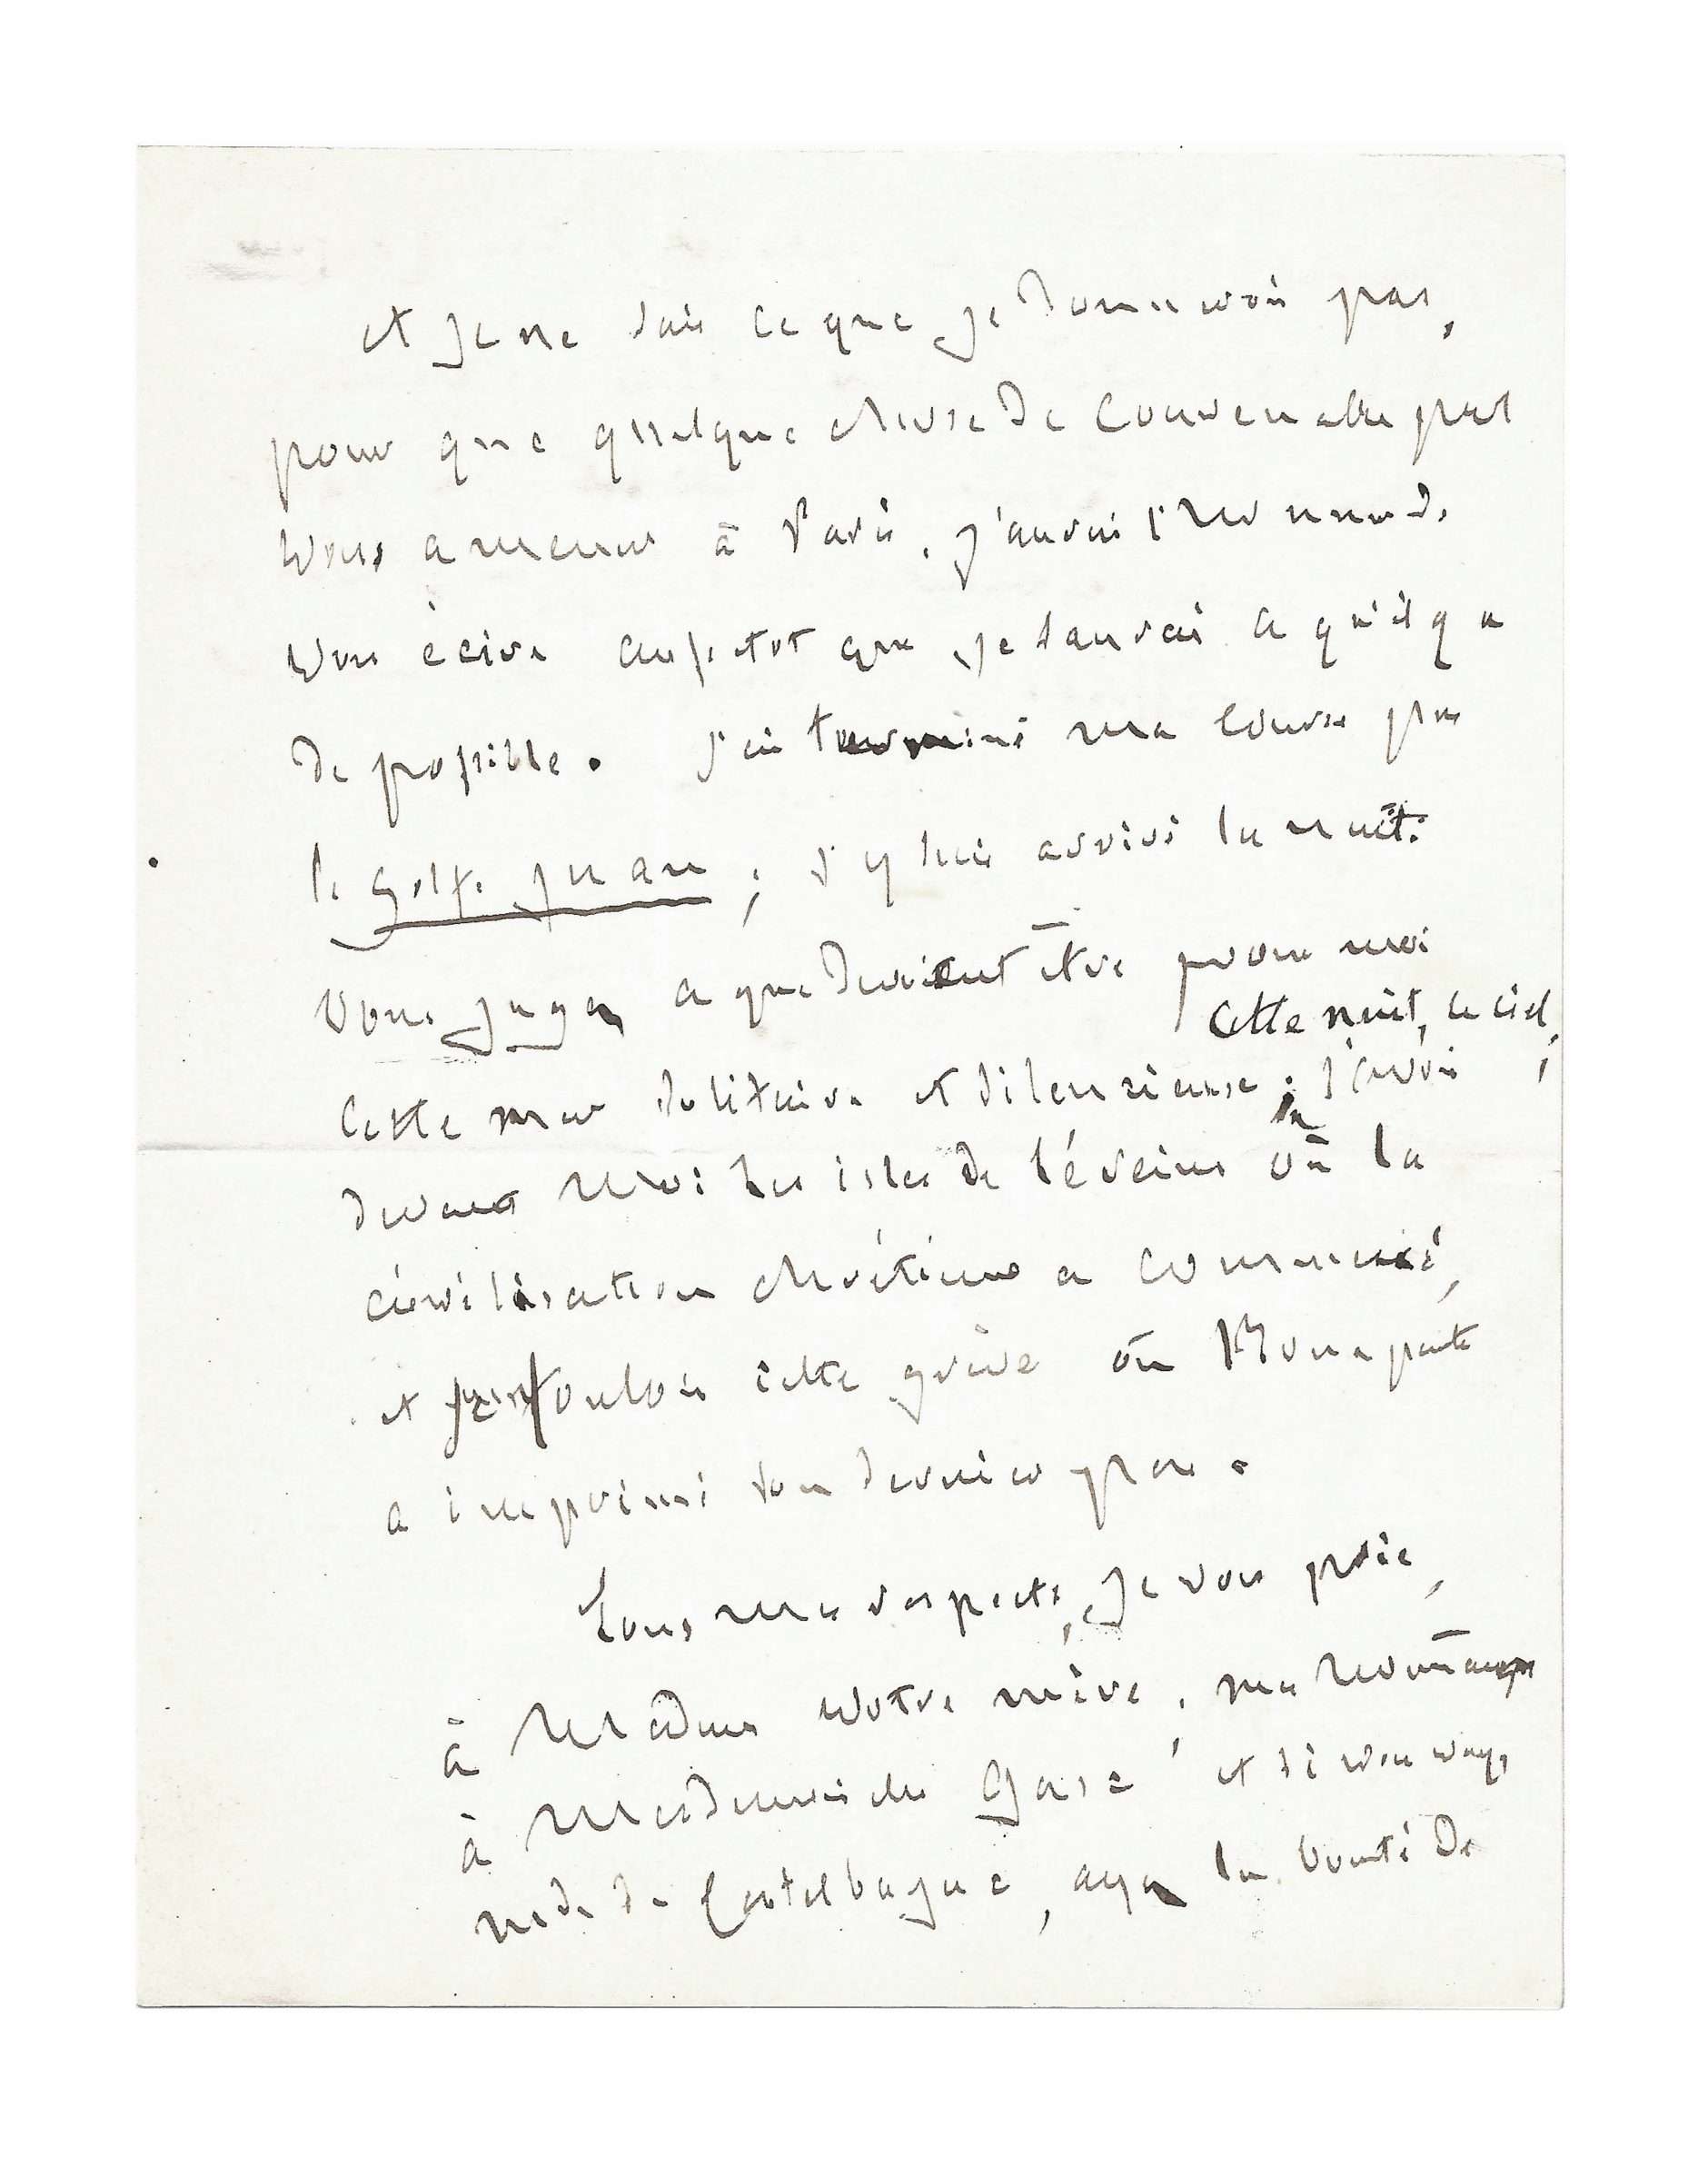 et je ne sais ce que je donnerois pas,
pour que quelque chose de convenable put
vous amener à Paris. J'aurai l'honneur de
vous écrire aussitot que je saurai ce qu'il y a
de possible. J'ai terminé ma course par
le golfe Juan ; j'y suis arrivé la nuit.
Vous jugez ce que devoient être pour moi
cette nuit, ce ciel,
cette mer solitaire et silencieuse ; j'avois
devant moi les isles de Lérins où la
civilisation chrétienne a commencé,
et foulois cette grève où Bonaparte
a imprimé son dernier pas.
Tous mes respects, je vous prie,
à Madame votre mère, mes hommages
à Mademoiselle Gasc et si vous voyez
made de Castelbajac, ayez la bonté de